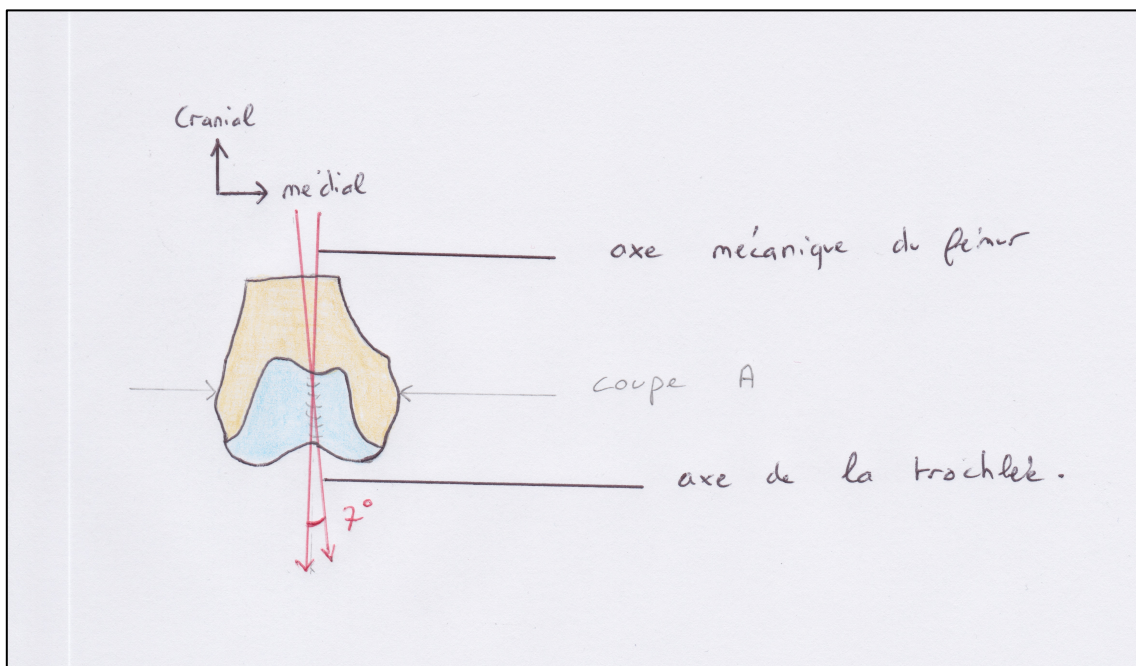 Cranial
médial
axe mécanique du fémur
coupe A
axe de la trochlée.
7°